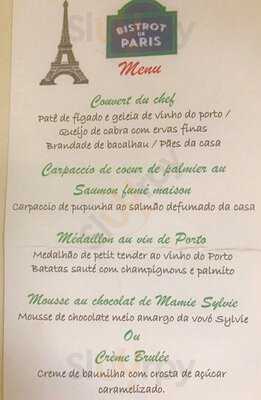 BISTROT
DE
PARIS
Menu
Couvert du chef
Patê de fígado e geleia de vinho do porto /
Queijo de cabra com ervas finas
Brandade de bacalhau / Pães da casa
Carpaccio de coeur de palmier au
Saumon fumé maison
Carpaccio de pupunha ao salmão defumado da casa
Médaillon au vin de Porto
Medalhão de petit tender ao vinho do Porto
Batatas sauté com champignons e palmito
Mousse au chocolat de Mamie Sylvie
Mousse de chocolate meio amargo da vovó Sylvie
Ou
Crème Brulée
Creme de baunilha com crosta de açúcar
caramelizado.